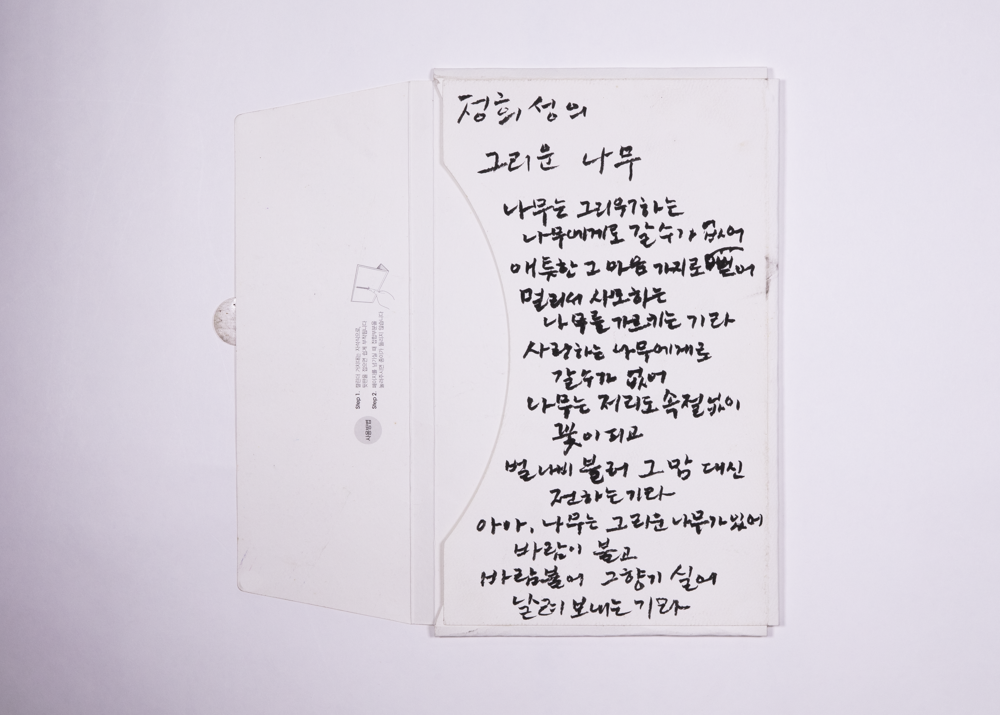 정희성의
그리운 나무
나무는 그리워하는
나무에게로 갈 수가 없어
애틋한 그 마음 가지로 뻗어
멀리서 사모하는
나무를 가르키는 기라
사랑하는 나무에게로
갈 수가 없어
나무는 저리도 속절없이
꽃이 피고
벌 나비 불러 그 맘 대신
전하는 기라
아아, 나무는 그리운 나무가 있어
바람이 불고
바람 불어 그 향기 실어
날려 보내는 기라
사용방법
Step 1
Step 2